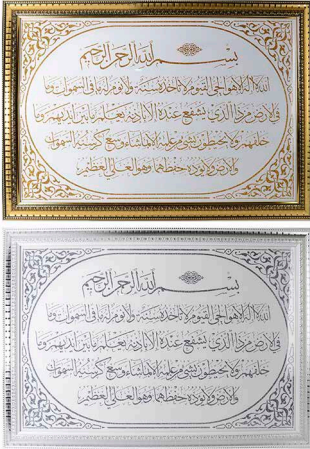 بسم الله الرحمن الرحيم
الله لا اله الا هو الحي القيوم لا تاخذه سنة ولا نوم له ما في السموات وما
في الارض من ذا الذي يشفع عنده الا باذنه يعلم ما بين ايديهم وما
خلفهم ولا يحيطون بشيء من علمه الا بما شاء وسع كرسيه السموات
والارض ولا يوده حفظهما وهو العلي العظيم
بسم الله الرحمن الرحيم
الله لا اله الا هو الحي القيوم لا تاخذه سنة ولا نوم له ما في السموات وما
في الارض من ذا الذي يشفع عنده الا باذنه يعلم ما بين ايديهم وما
خلفهم ولا يحيطون بشيء من علمه الا بما شاء وسع كرسيه السموات
والارض ولا يوده حفظهما وهو العلي العظيم